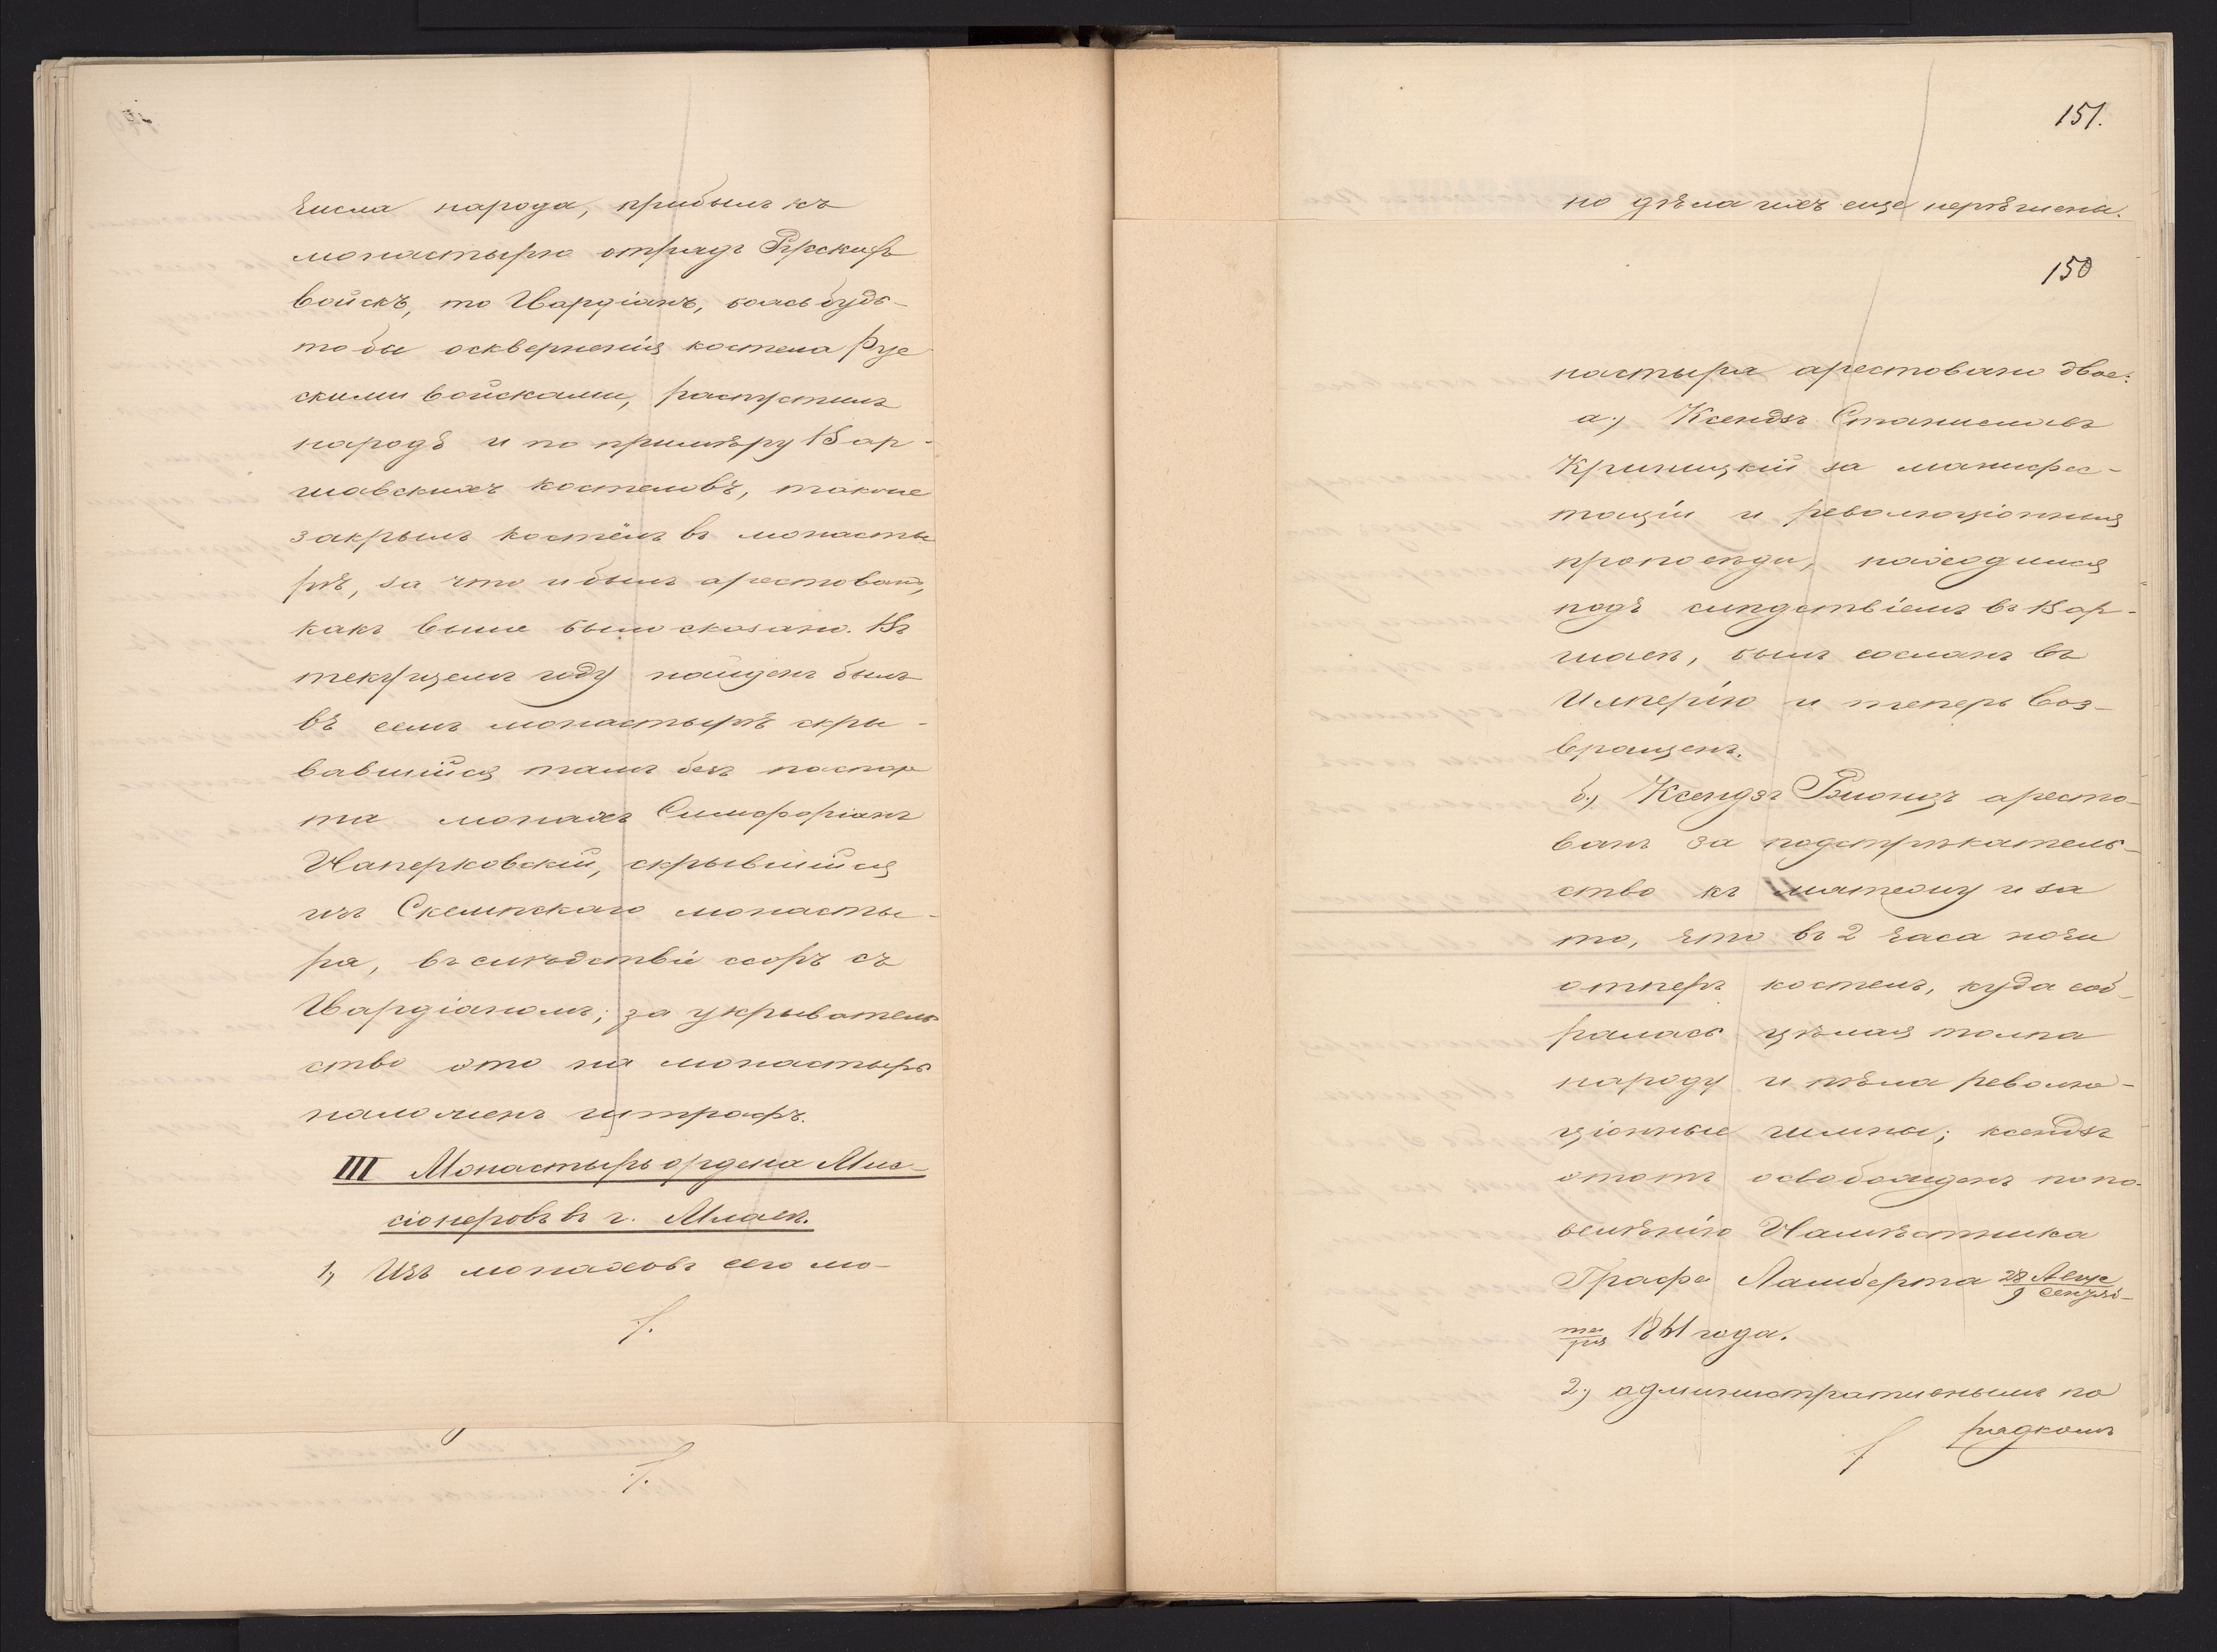 числа народа, прибылъ къ
монастырю отрядъ Рускихъ
войскъ, то Гвардіанъ, боясь будь-
то бы оскверненія костела Рус
скими войсками, распустилъ
народъ и по примѣру Вар-
шавскихъ костеловъ, также
закрылъ костёлъ въ монасты
рѣ, за что и былъ арестованъ,
какъ выше было сказано. Въ
текущемъ году найденъ былъ
въ семъ монастырѣ скры-
вавшійся тамъ безъ паспор
та монахъ Симфоріанъ
Наперковскій, скрывшійся
изъ Скемпскаго монасты-
ря, въ слѣдствіе ссоръ съ
Гвардіаномъ; за укрыватель
ство это на монастырь
наложенъ штрафъ.
III Монастырь ордена Мис-
сіонеровъ въ г. Млавѣ.
1, Изъ монаховъ сего мо-
151.
но дѣла ихъ еще нерѣшены.
150
настыря арестовано двое:
а., Ксендзъ Станиславъ
Криницкій за манифес-
таціи и революціонныя
проповѣди, находился
подъ слѣдствіемъ въ Вар-
шавѣ, былъ сосланъ въ
Имперію и теперь воз-
вращенъ.
б., Ксендзъ Блондъ аресто-
ванъ за подстрѣкатель-
ство къ мятежу и за
то, что въ 2 часа ночи
отперъ костелъ, куда соб-
ралась цѣлая толпа
народу и пѣла револю-
ціонные гимны; ксендзъ
этотъ освобожденъ по по-
велѣнію Намѣстника
Графа Ламберта 28 Авгус
9 Сентяб-
та
ря 1861 года.
2., административнымъ по
рядкомъ